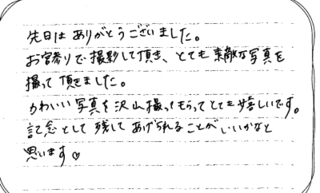 先日は ありがとうございました。
お宮参りで撮影して頂き、とても 素敵な写真を
撮って 頂きました。
かわいい 写真を 沢山 撮ってもらってとても嬉しいです。
記念として 残して あげられることが いいかなと
思います♡